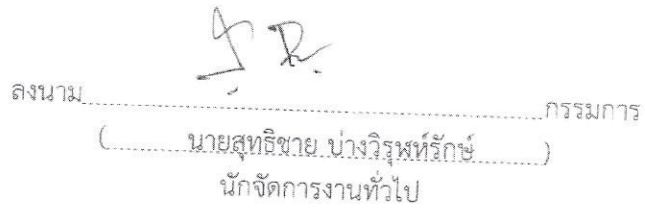 ลงนาม........................................................กรรมการ
( นายสุทธิชาย บ่างวิรุฬห์รักษ์ )
นักจัดการงานทั่วไป